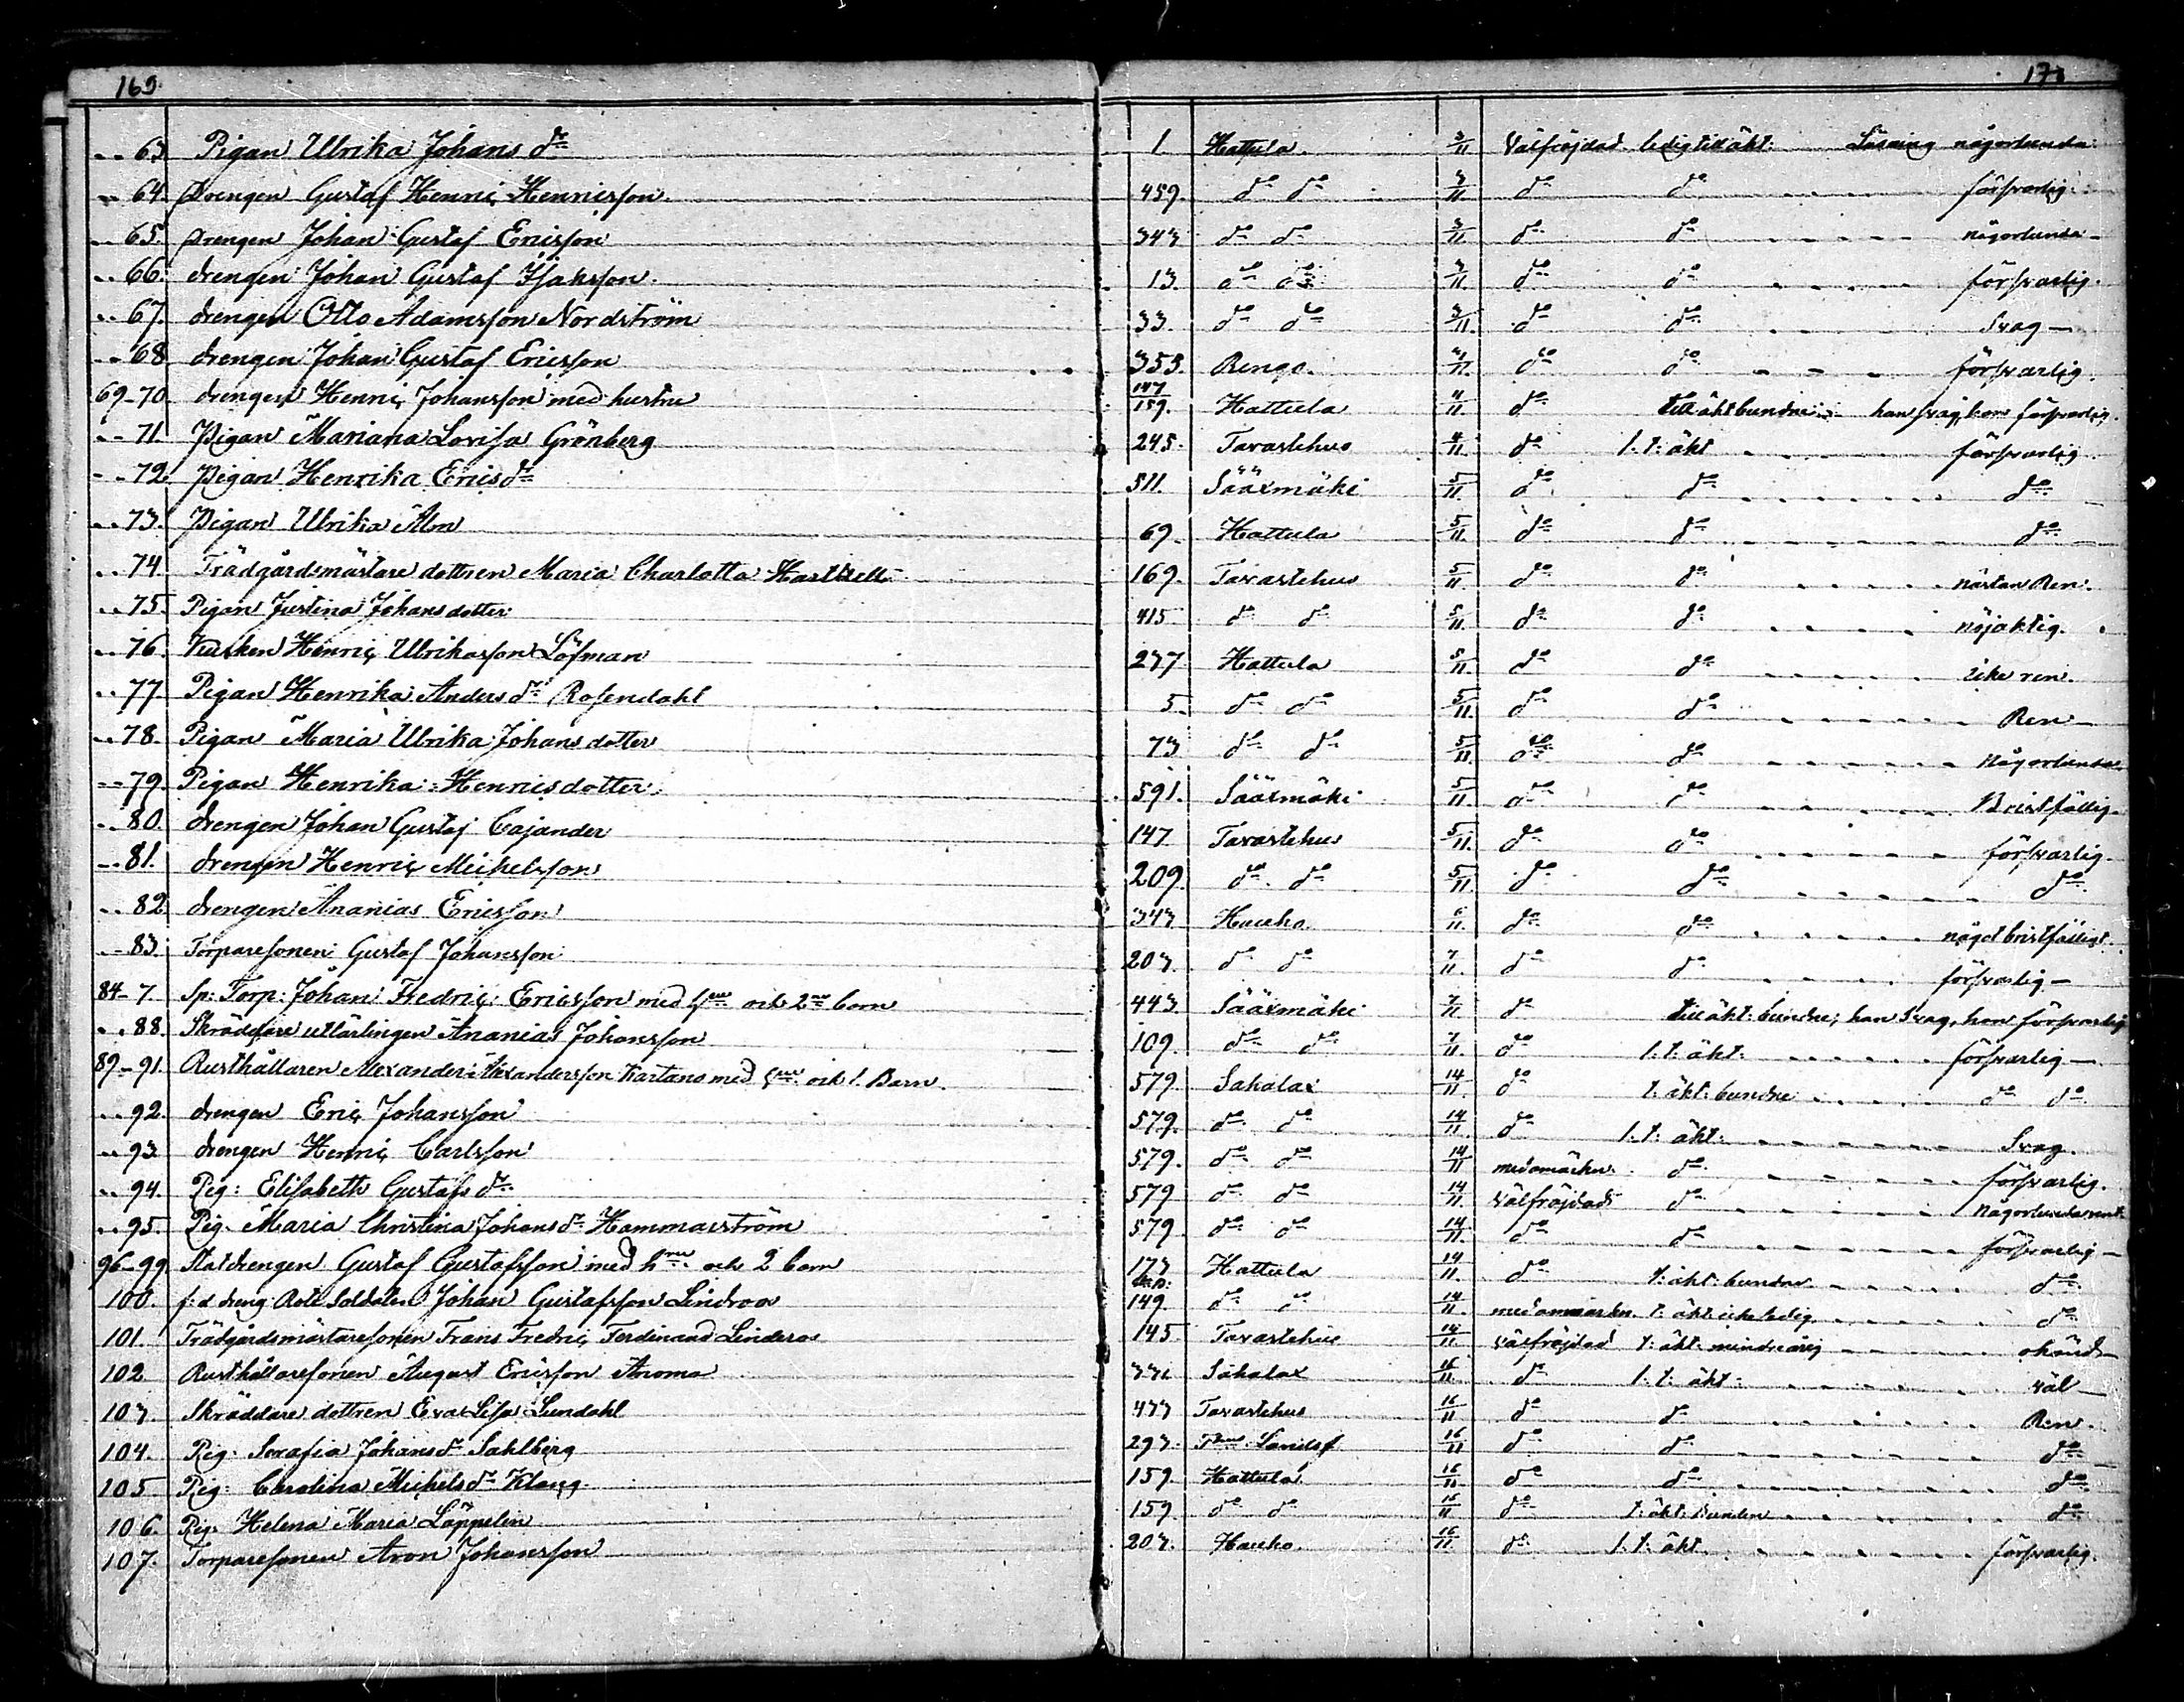 169.
63 Pigan Ulrika Johans dr
64. Drengen Gustaf Henric Henricsson.
65. Drengen Johan Gustaf Ericsson
66. drengen Johan Gustaf Isaksson.
67. drengen Otto Adamsson Nordström
68 drengen Johan Gustaf Ericsson
69-70. drengen Henric Johansson med hustru
71. Pigan Mariana Lovisa Grönberg
72. Pigan Henrika Ericsdr
73. Pigan Ulrika Alm
74. Trädgårdsmästare dottren Maria Charlotta
75. Pigan Justina Johansdotter
76. Kusken Henric Ulrikasson Löfman
77. Pigan Henrika Anders dr Rosendahl
78. Pigan Maria Ulrika Johansdotter
79. Pigan Henrika Henricsdotter
80. drengen Johan Gustaf Cajander
81. drengen Henric Michelsson
82 drengen Ananias Ericsson
83. Torparesonen Gustaf Johansson
84-7. Sp: Torp: Johan Fredric Ericsson med hru och 2ne barn
88. Skräddare utlärlingen Ananias Johansson
89-91. Rusthållaren Alexander Alexandersson Kartano med hru och 1. Barn.
92. drengen Eric Johansson
93 drengen Henric Carlsson
94. Pig: Elisabeth Gustafs dr
95. Pig. Maria Christina Johans dr Hammarström
96-99. Statdrengen Gustaf Gustafsson med hru och 2 barn
100. f: d dreng Rote Soldaten Johan Gustafsson Lindroos
101. Trädgårdsmästaresonen Frans Fredric Ferdinand Linderos
102 Rusthållaresonen August Ericsson Anoma
103. Skräddare dottren Eva Lisa Lundahl
104. Pig. Serafia Johans dr Sahlberg
105 Pig: Carolina Michels dr Klang
106. Pig. Helena Maria Läppelin
107. Torparesonen Aron Johansson
1. Hattula. 3/11 Välfrejdad ledig till äkt: Läsning någorlunda
459. do do 3/11 do do försvarlig
343 do do 3/11 do do någorlunda
13. do do 3/11 do do försvarlig.
33. do do 3/11 do do Svag
353. Rengo. 4/11 do do försvarlig.
147/159. Hattula 4/11 do till äkt bundne han svag, hon försvarlig.
245. Tavastehus 4/11 do l. t: äkt försvarlig
511. Sääxmäki 5/11 do do do
69. Hattula 5/11 do do do
169. Tavastehus 5/11 do do nästan Ren.
415 do do 5/11 do do nöjaktig.
237 Hattula 5/11 do do icke ren.
5. do do 5/11 do do Ren
73 do do 5/11 do do någorlunda
591. Sääxmäki 5/11 do do Bristfällig.
147 Tavastehus 5/11 do do försvarlig.
209. do do 5/11 do do do
343 Hauho. 6/11 do do något bristfälligt.
203. do do 7/11 do do försvarlig
443. Sääxmäki 7/11 do till äkt: bundne; han Svag, hon försvarlig
109. do do 7/11 do l: t: äkt: försvarlig
579. Sahalax 14/11 do t: äkt: bundne do do
579. do do 14/11 do l. t: äkt: Svag.
579. do do 14/11 do försvarlig.
579 do do 14/11 välfrejdad do någorlunda
579 do do 14/11 do do försvarlig
173 Hattula 14/11 do t: äkt: bundne do
149. do do 14/11 t: äkt: icke ledig do
145 Tavastehus 14/11 välfrejdad t: äkt: minderårig okänd
Sahalax 16/11 do l: t: äkt: väl
433 Tavastehus 16/11 do do Ren.
293. Landsf 16/11 do do do
159. Hattula 16/11 do do do
159 do do 16/11 do t: äkt: bunden do
203. Hauho. 16/11 do l: t: äkt. försvarlig.